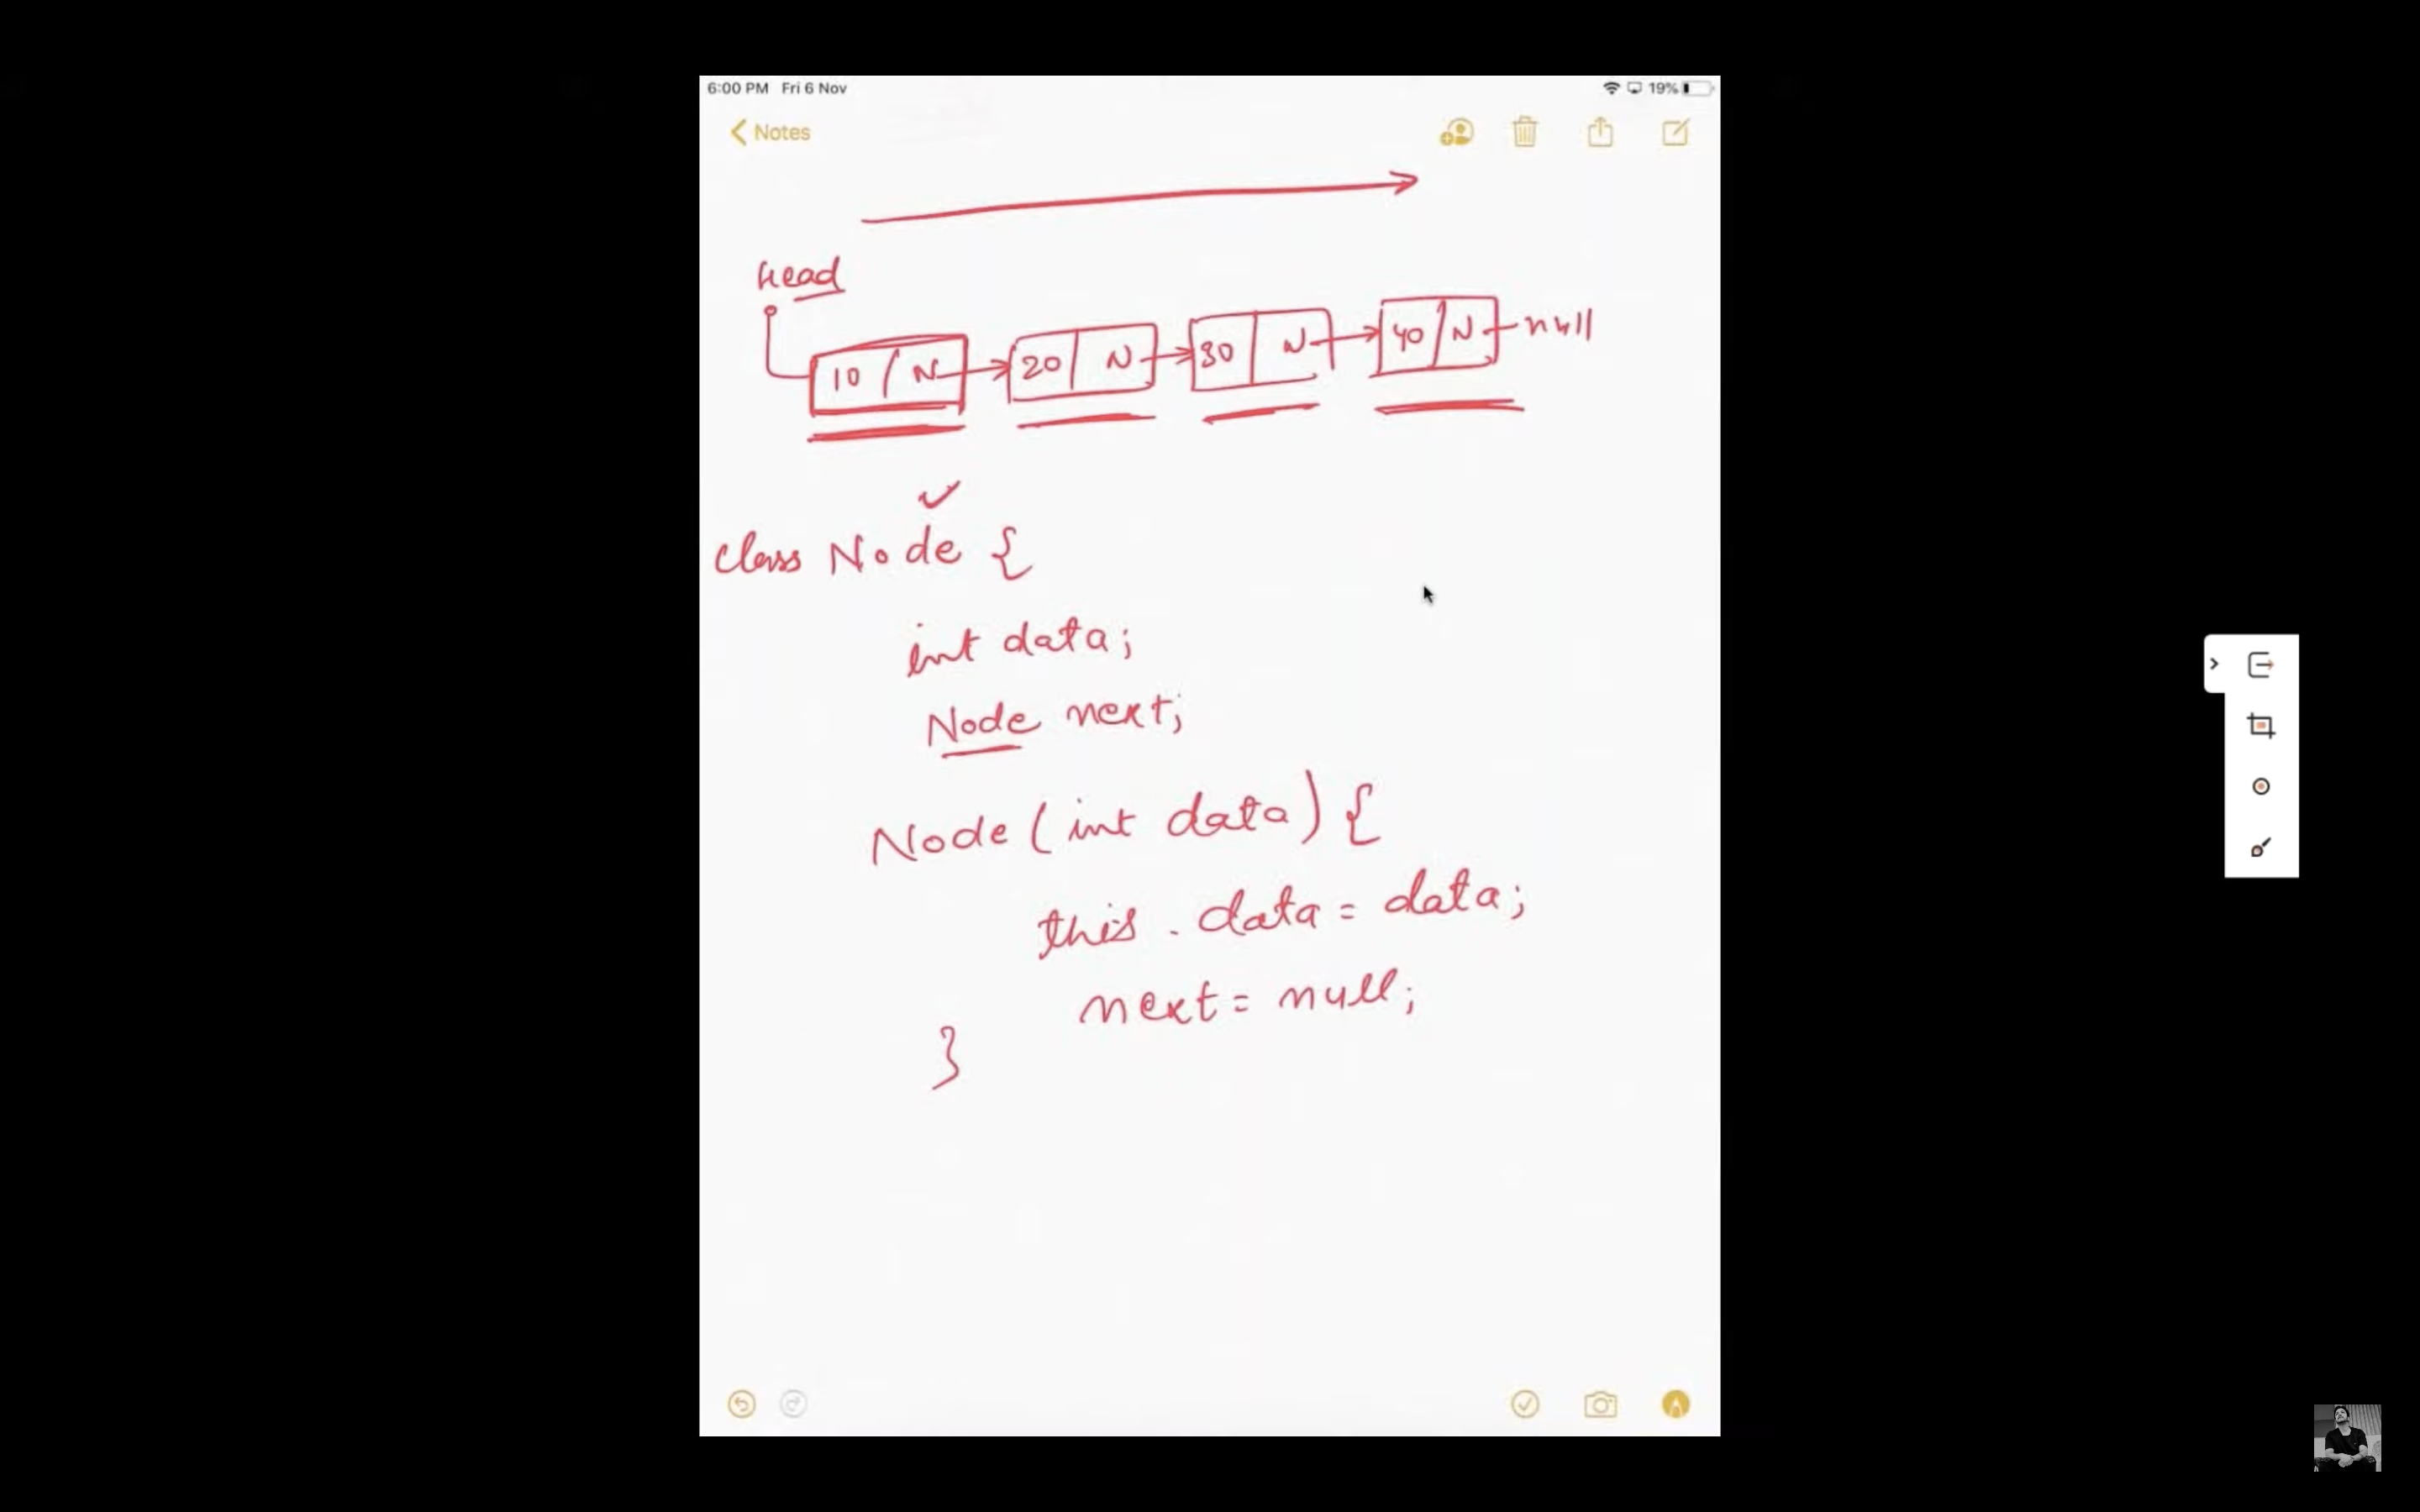 6:00 PM Fri 6 Nov 19%
Notes
Head
10 N 20 N 30 N 40 N null
class Node {
int data;
Node next;
Node (int data) {
this . data = data;
next = null;
}